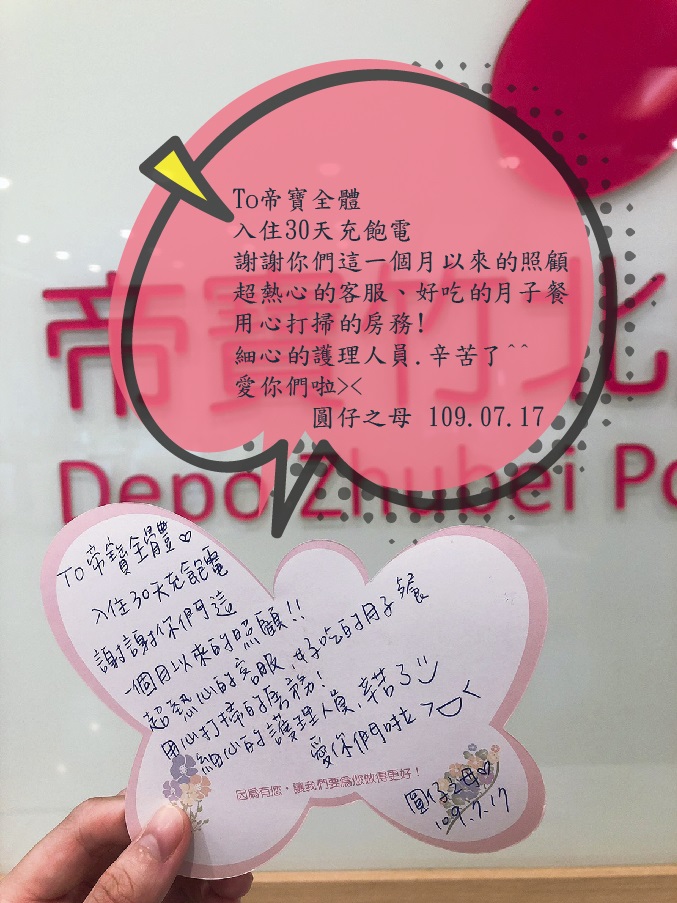 To帝寶全體
入住30天充飽電
謝謝你們這一個月以來的照顧
超熱心的客服、好吃的月子餐
用心打掃的房務!
細心的護理人員.辛苦了^^
愛你們啦><
圓仔之母 109.07.17
帝寶竹北
Depo Zhubei Po
TO帝寶全體♡
入住30天充飽電
謝謝你們這
一個月以來的照顧!!
超熱心的客服、好吃的月子餐
用心打掃的房務!
細心的護理人員.辛苦了
愛你們啦>D<
因為有您，讓我們要為您做得更好！
圓仔之母♡
109.7.17